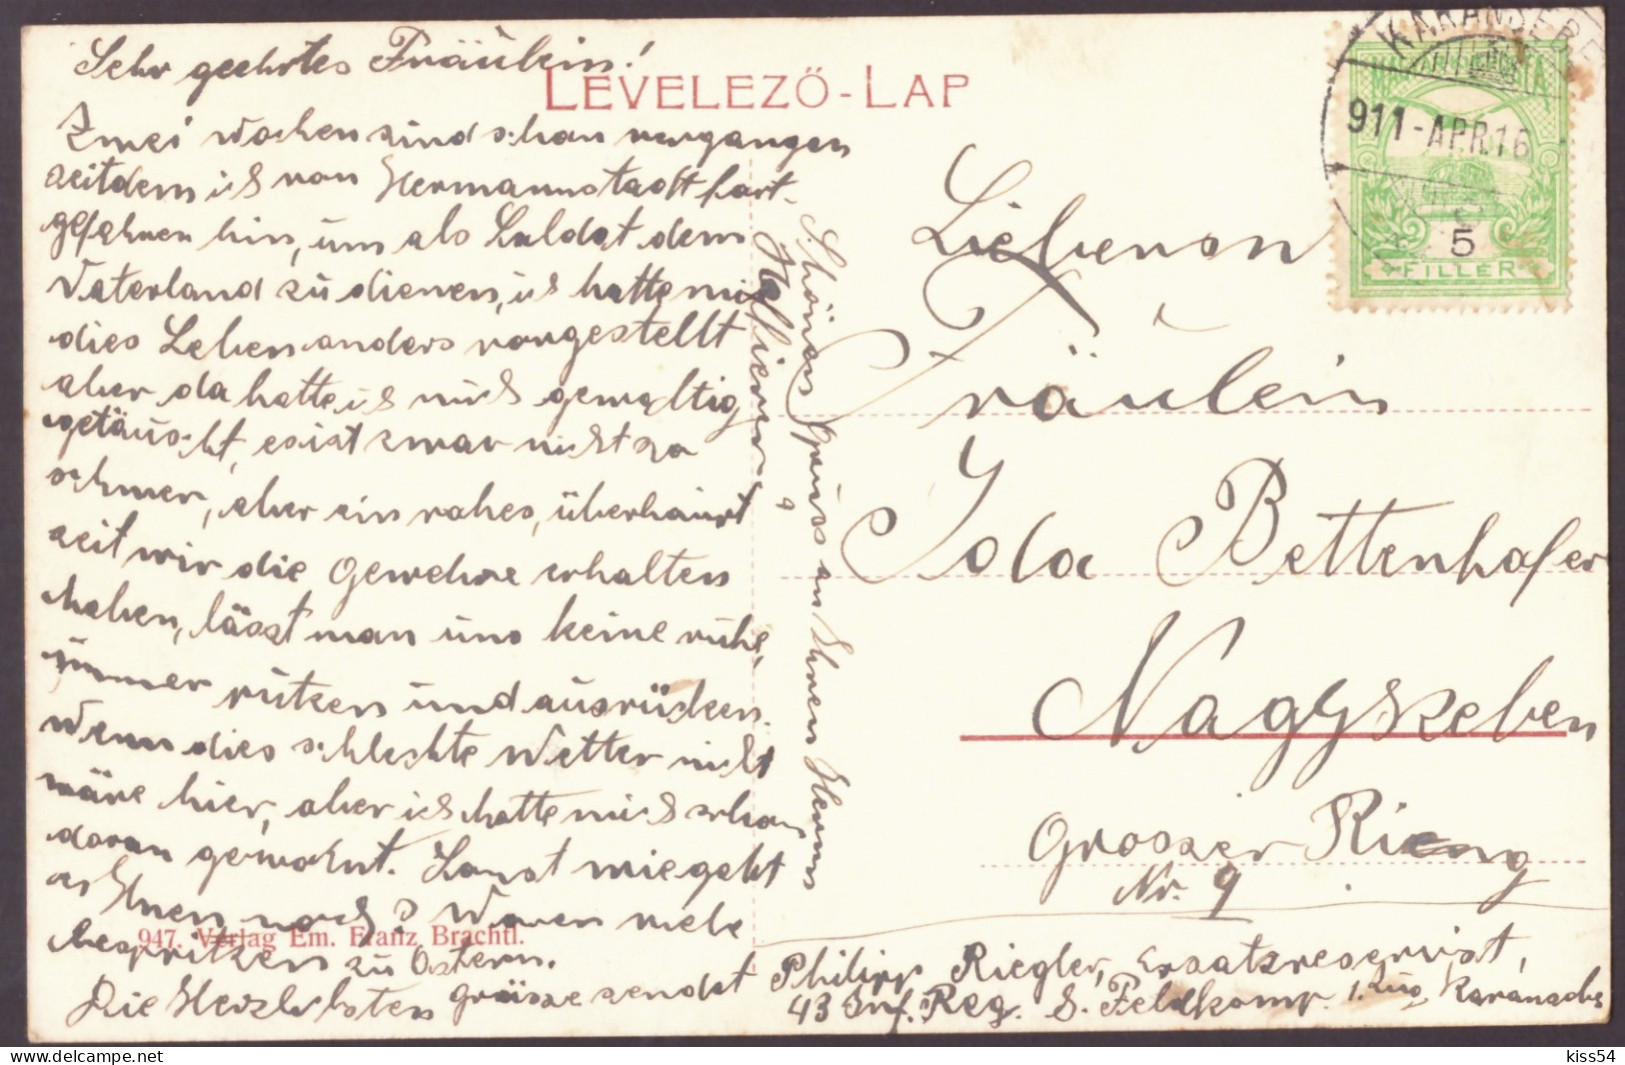 LEVELEZŐ-LAP
Sehr geehrtes Fräulein!
Zwei wochen sind schon vergangen
seitdem ich von Hermannstadt fort-
gefahren bin, um als Soldat dem
Vaterland zu dienen, ich hatte mir
dies Leben anders vorgestellt
aber da hatte ich mich gewaltig
getäuscht, es ist zwar nicht so
schwer, aber ein rohes, überhaupt
seit wir die Gewehre erhalten
haben, lässt man uns keine ruhe,
immer rüken und ausrücken.
Wenn dies schlechte Wetter nicht
wäre hier, aber ich hatte mich schon
daran gewohnt. Sonst wie geht
es Ihnen noch? Waren viele
bespritzen zu Ostern.
Die Herzlichsten grüsse sendet Philipp Riegler, Ersatzreservist,
43 Inf. Reg. 8. Feldkomp. 1. Zug Karansebes
Schönen Gruss an Ihren Herrn
947. Verlag Em. Franz Brachtl.
KARÁNSEBES
911-APR.16
5
FILLÉR
Lieberson
Fräulein
Ida Bettenhofer
Nagyszeben
Grosser Rieng
Nr. 9
kiss54